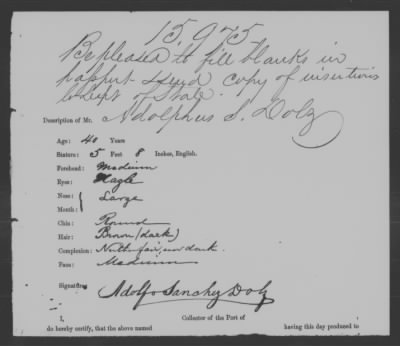 15,975,
Be pleased to fill blanks in
passport & send copy of insertions
to Dept of State.
Description of Mr. Adolphus S. Dolz
Age: 40 Years
Stature: 5 Feet 8 Inches, English.
Forehead: Medium
Eyes: Hazle
Nose: Large
Mouth:
Chin: Round
Hair: Brown (dark)
Complexion: Neither fair, nor dark.
Face: Medium
Signature, Adolfo Sanchez Dolz
I, Collector of the Port of
do hereby certify, that the above named having this day produced to